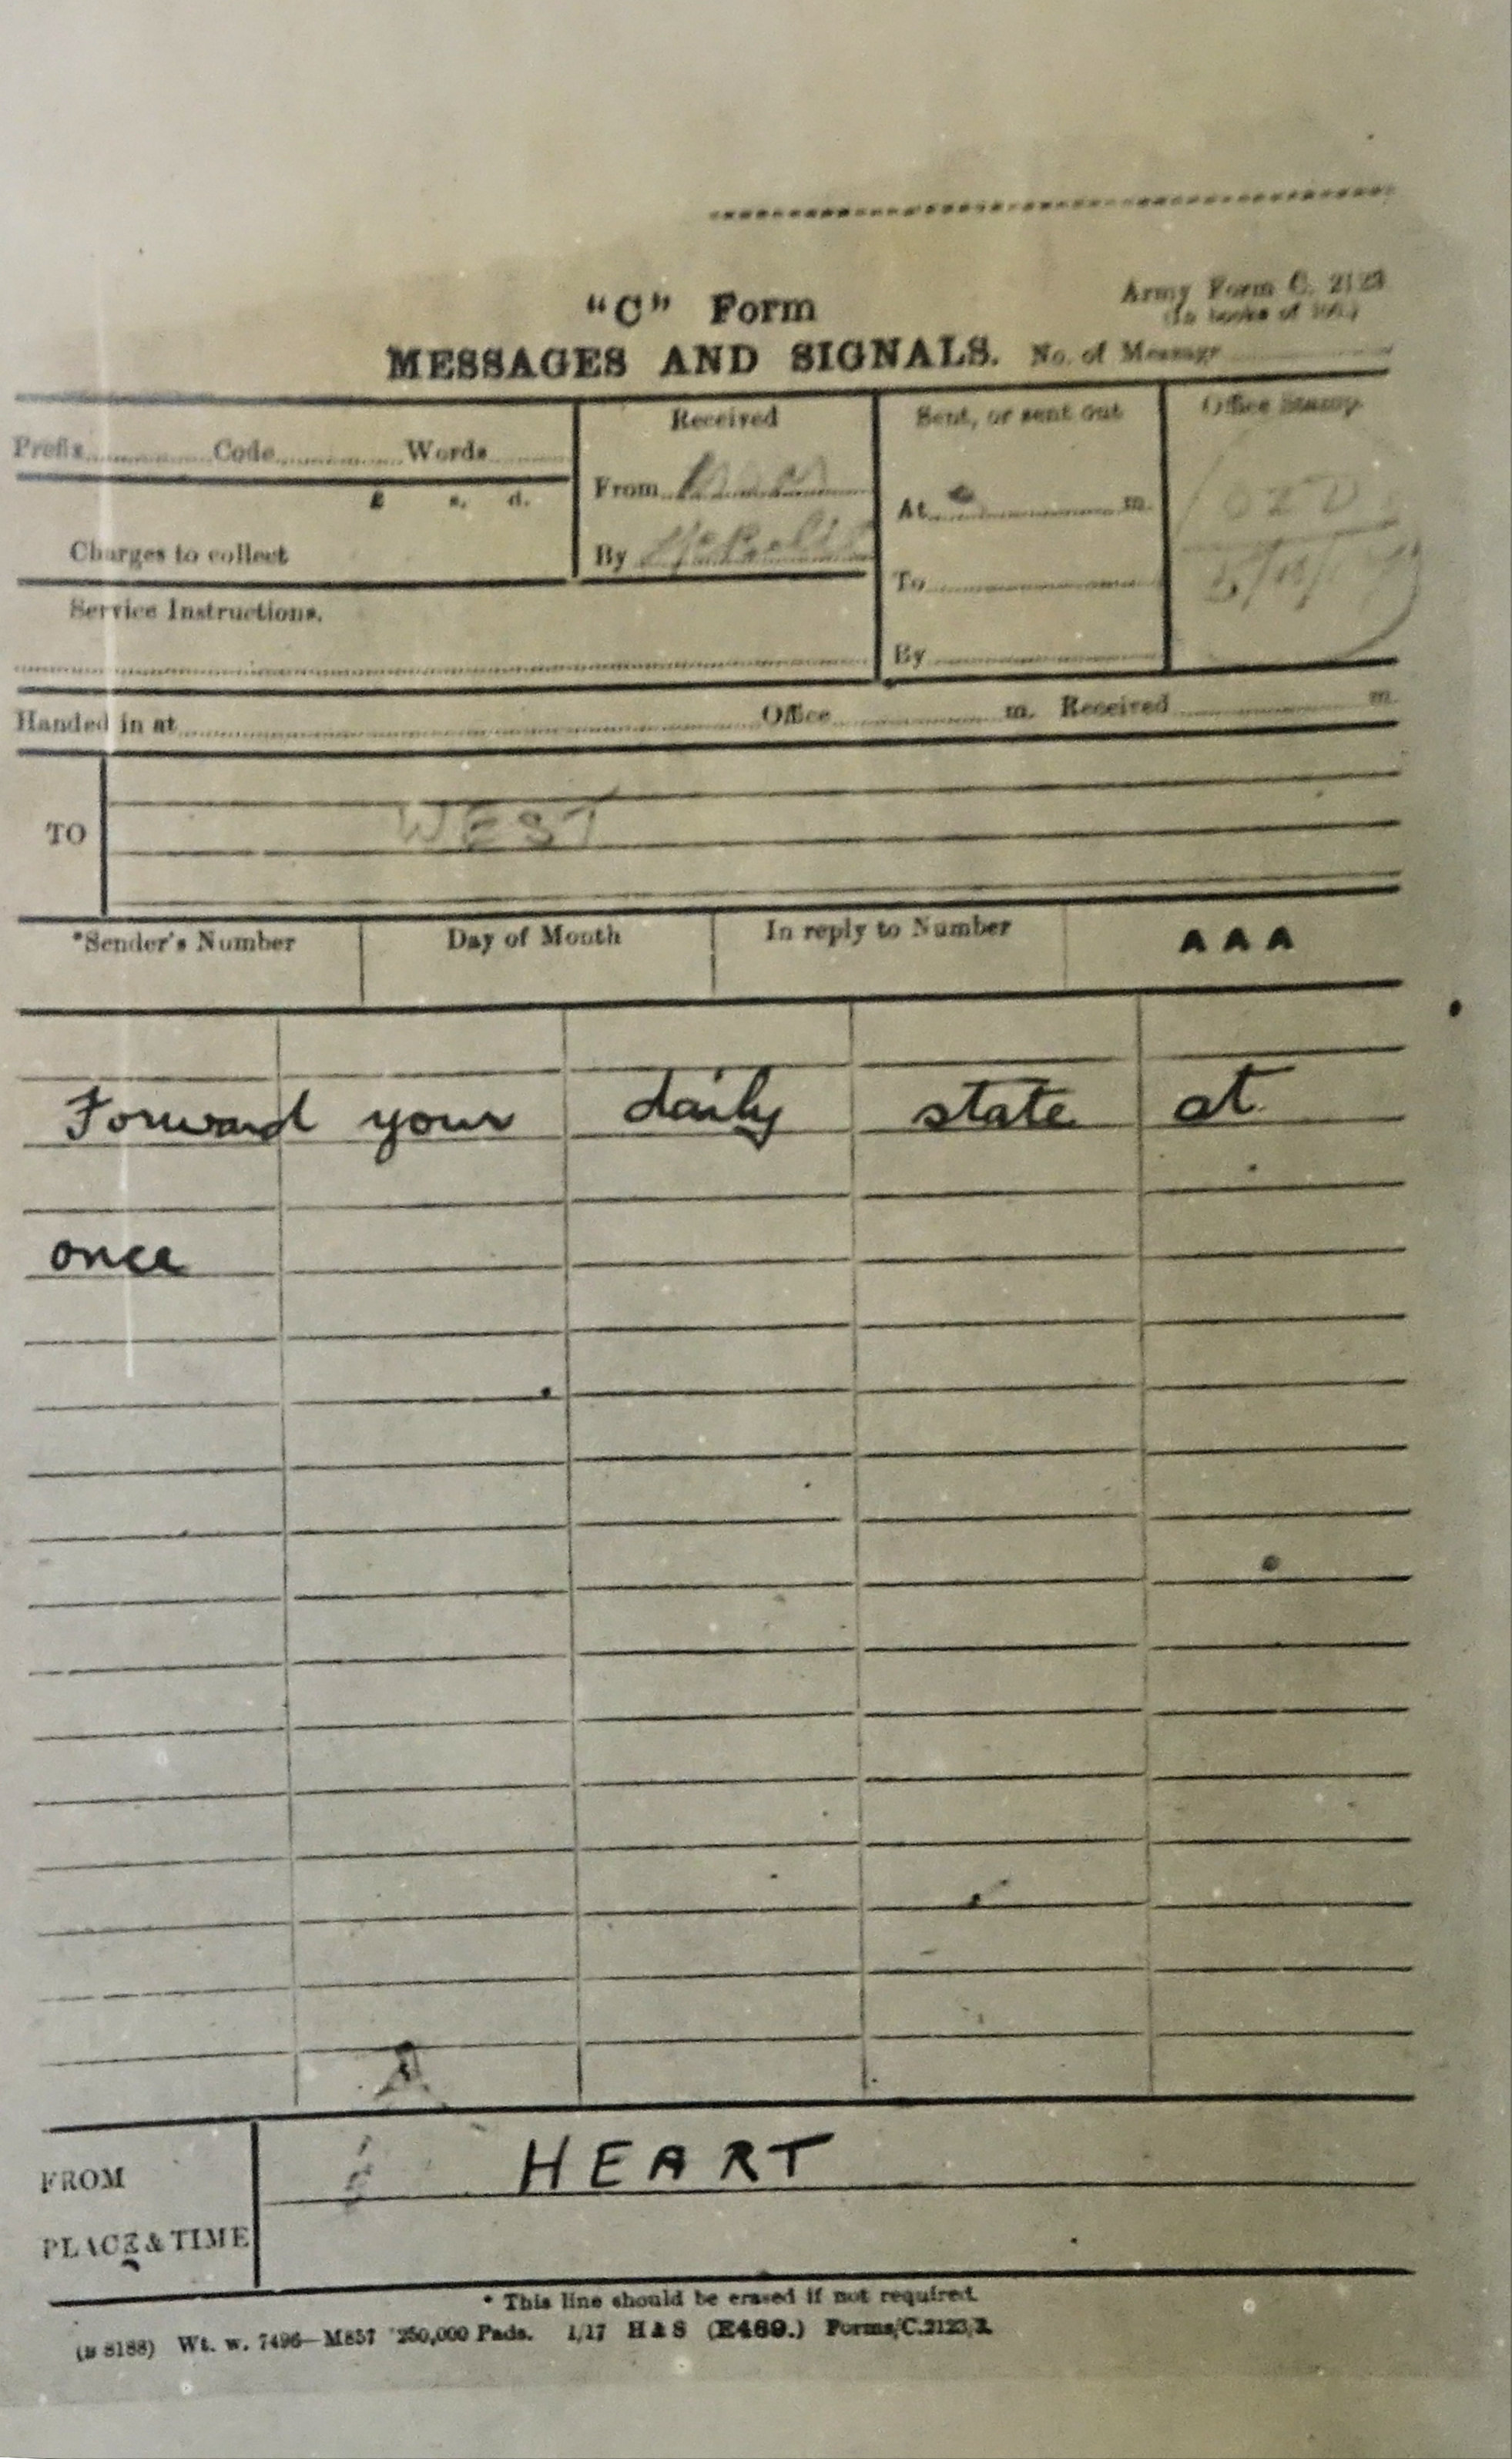 "C" Form
Army Form C. 2123
(In books of 100.)
MESSAGES AND SIGNALS. No. of Message
Prefix Code Words
£ s. d.
Charges to collect
Service Instructions.
Received
From
By
Sent, or sent out
At m.
To
By
Office Stamp.
Handed in at Office m. Received m.
TO
WEST
*Sender's Number Day of Month In reply to Number AAA
Forward your daily state at
once
FROM HEART
PLACE & TIME
* This line should be erased if not required.
(E 8188) Wt. w. 7496—M857 250,000 Pads. 1/17 H & S (E469.) Forms/C.2123/3.